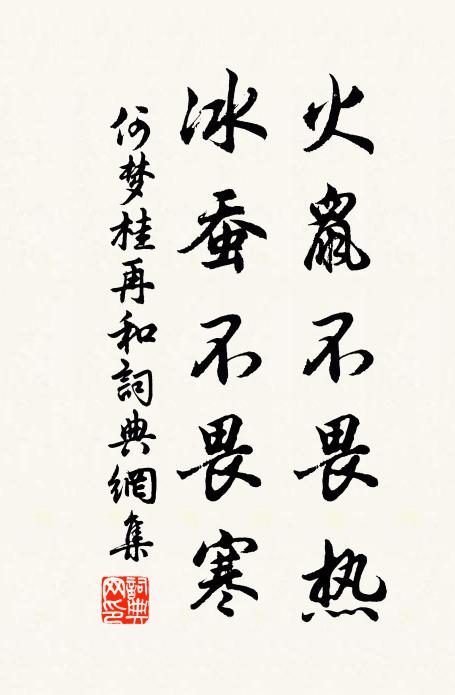 火鼠不畏热
冰蚕不畏寒
何梦桂再和詞典網集
詞典网印